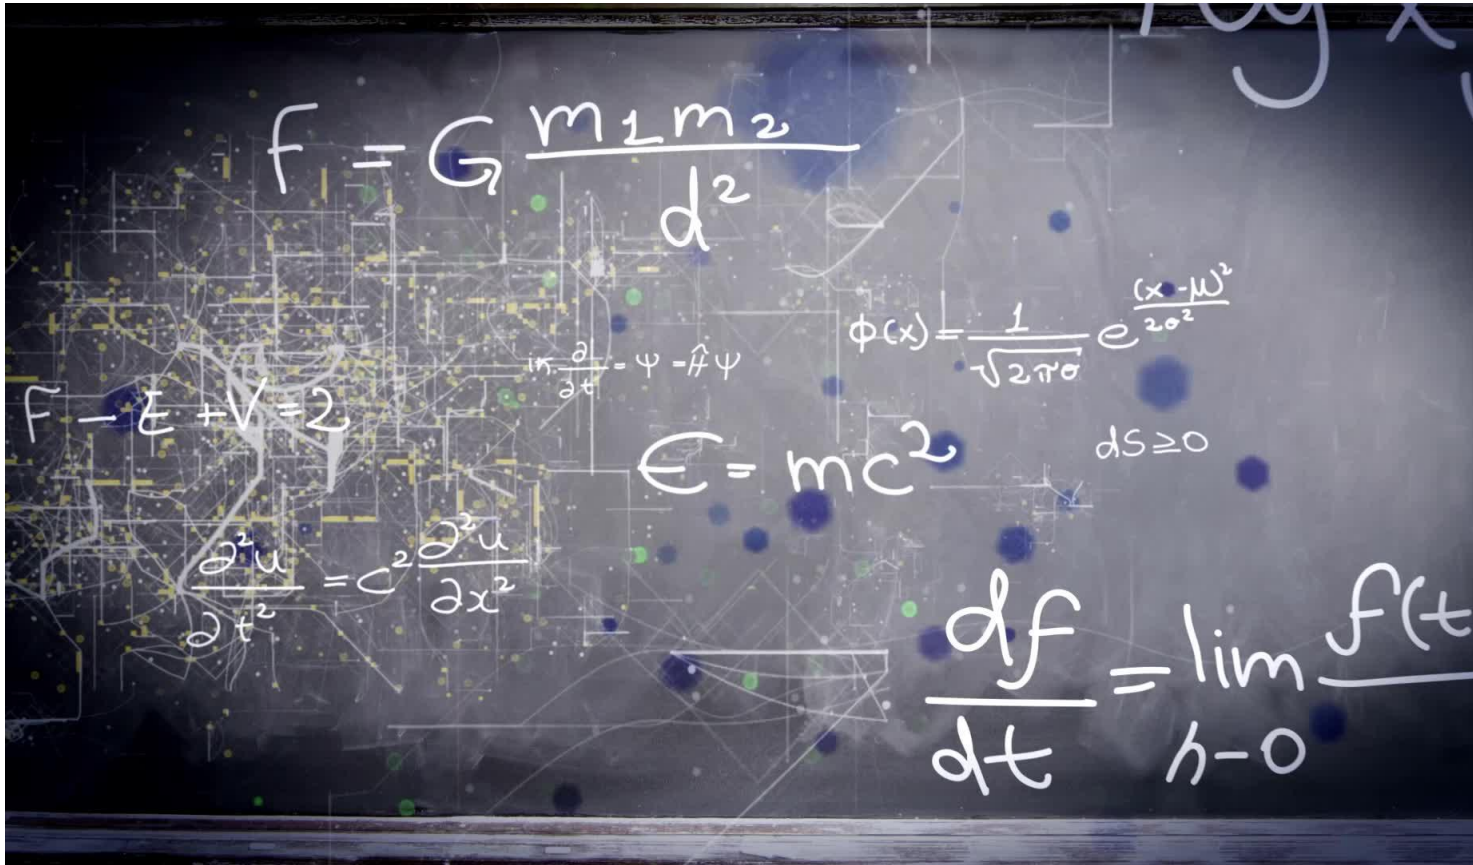 log x
F = G m1m2 / d²
ϕ(x) = 1 / √2πσ e (x-μ)² / 2σ²
iℏ ∂ / ∂t = Ψ = Ĥ Ψ
F - E + V = 2
E = mc²
dS ≥ 0
∂²u / ∂t² = c² ∂²u / ∂x²
df / dt = lim h-0 f(t